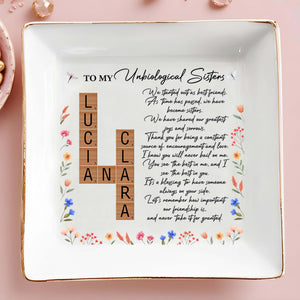 TO MY Unbiological Sisters
LUCIAN
CLARA
We started out as best friends.
As time has passed, we have
become sisters.
We have shared our greatest
joys and sorrows.
Thank you for being a constant
source of encouragement and love.
I know you will never bail on me.
You see the best in me, and I
see the best in you.
It's a blessing to have someone
always on your side.
Let's remember how important
our friendship is,
and never take it for granted.